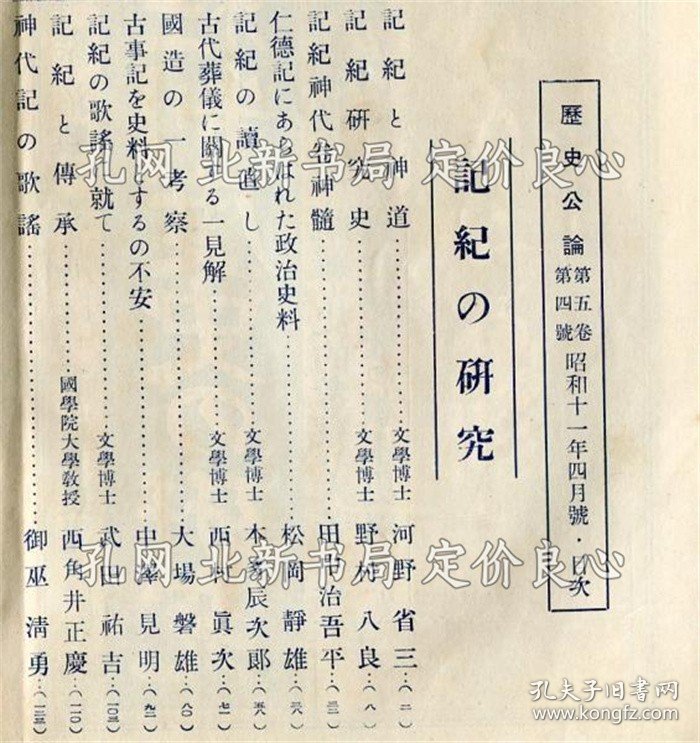 歷史公論 第五卷 第四號 昭和十一年四月號・目次
記紀の硏究
記紀と神道 文學博士 河野省三 (二)
記紀硏究史 文學博士 野村八良 (八)
記紀神代 神髓 田中治吾平
仁德記にあらはれた政治史料 松岡靜雄
記紀の讀直し 文學博士 本多辰次郎
古代葬儀に關する一見解 文學博士 西村眞次 (七一)
國造の一考察 大場磐雄 (八〇)
古事記を史料とするの不安 中澤見明 (九二)
記紀の歌謠に就て 文學博士 武田祐吉 (一〇三)
記紀と傳承 國學院大學敎授 西角井正慶 (一一〇)
神代記の歌謠 御巫淸勇 (一三三)
孔网 北新书局 定价良心
孔网 北新书局 定价良心
孔夫子旧书网
www.kongfz.com